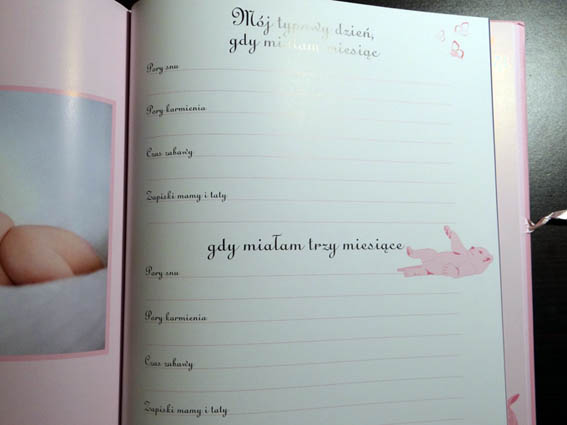 Mój typowy dzień,
gdy miałam miesiąc
Pory snu
Pory karmienia
Czas zabawy
Zapiski mamy i taty
gdy miałam trzy miesiące
Pory snu
Pory karmienia
Czas zabawy
Zapiski mamy i taty